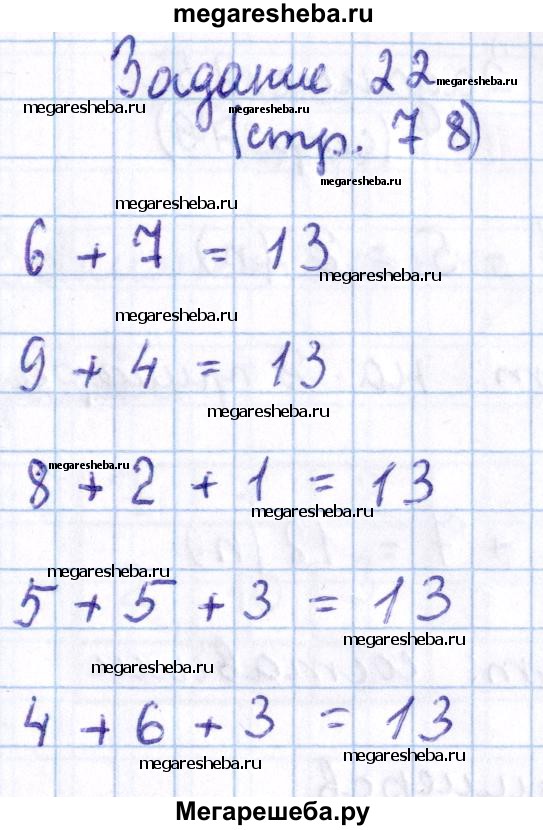 megaresheba.ru
Задание 22
megaresheba.ru
megaresheba.ru
megaresheba.ru
(стр. 78)
megaresheba.ru
megaresheba.ru
6 + 7 = 13
megaresheba.ru
megaresheba.ru
9 + 4 = 13
megaresheba.ru
megaresheba.ru
8 + 2 + 1 = 13
megaresheba.ru
megaresheba.ru
5 + 5 + 3 = 13
megaresheba.ru
megaresheba.ru
4 + 6 + 3 = 13
megaresheba.ru
megaresheba.ru
Мегарешеба.ру